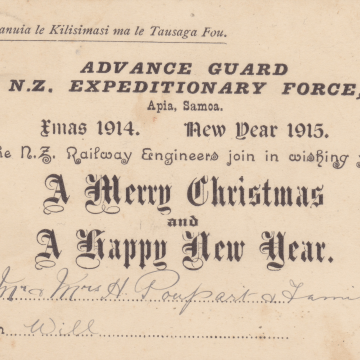 anuia le Kilisimasi ma le Tausaga Fou.
ADVANCE GUARD
N.Z. EXPEDITIONARY FORCE,
Apia, Samoa.
Xmas 1914. New Year 1915.
he N.Z. Railway Engineers join in wishing
A Merry Christmas
and
A Happy New Year.
Mr & Mrs H Poupart & Fami
Will